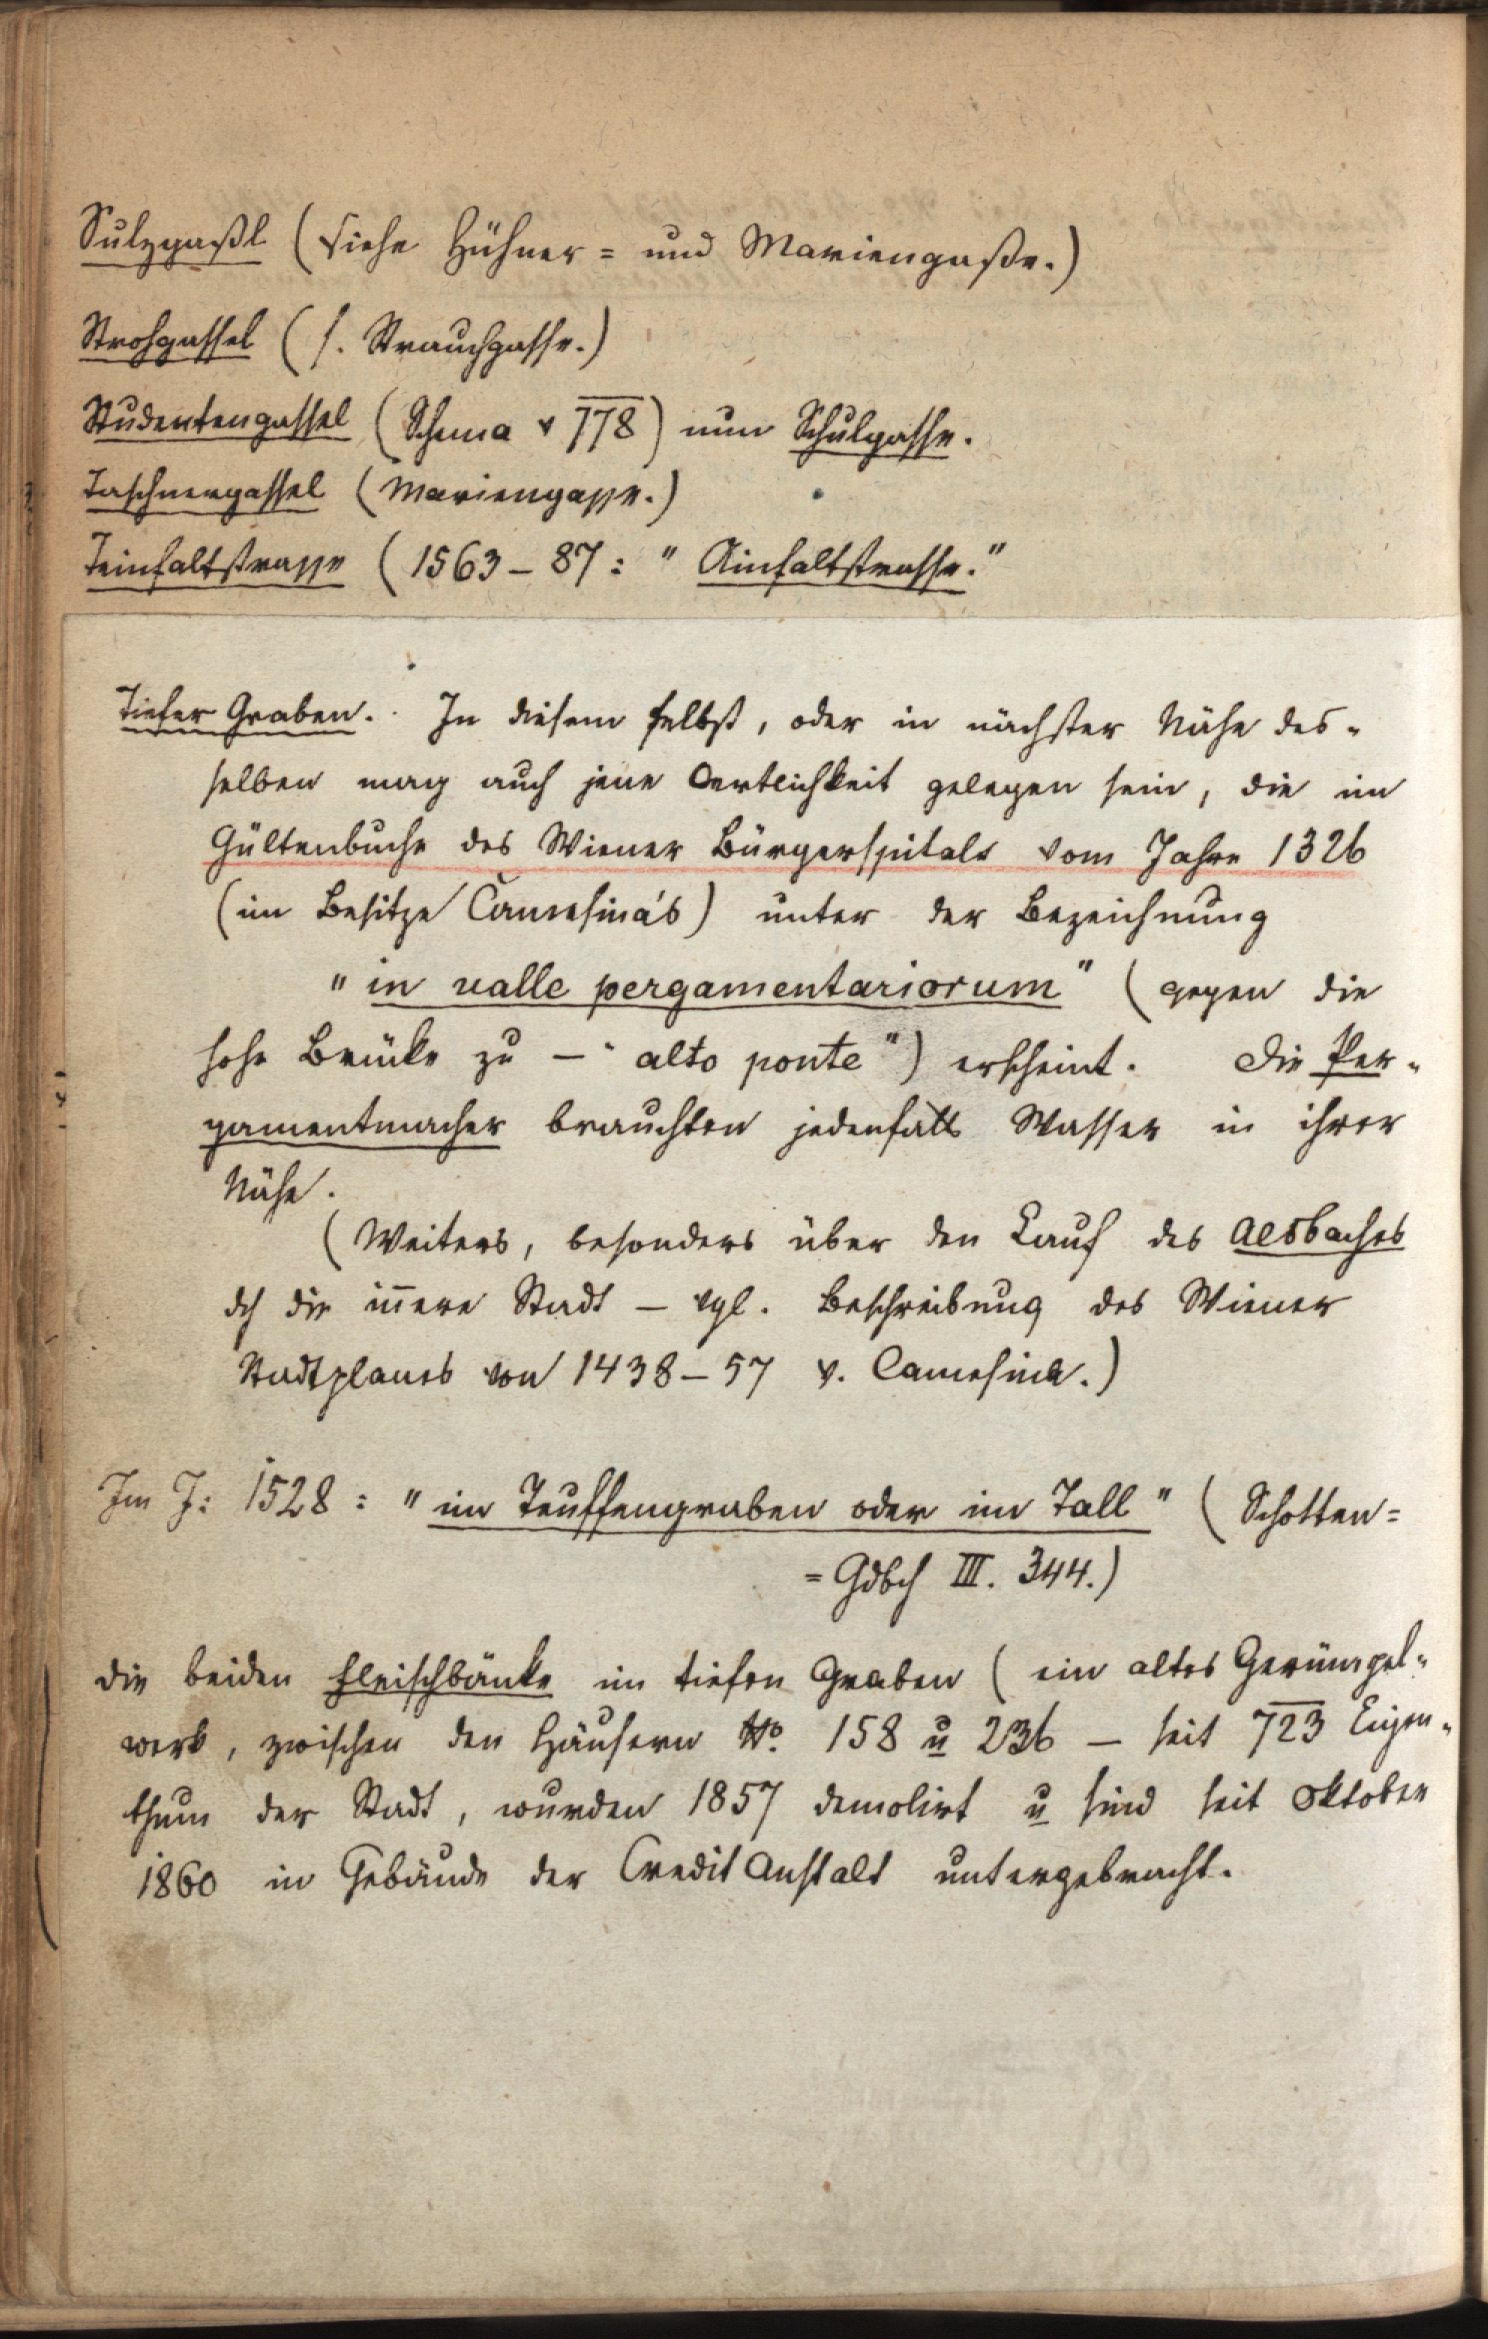 Sulzgaßl (siehe Hühner= und Mariengaße.)
Strohgassel (s. Strauchgasse.)
Studentengassel (Schema v 778) nun Schulgasse.
Taschnergassel (Mariengasse.)
Teinfaltstrasse (1563–87: "Ainfaltstrasse."
Tiefer Graben. In diesem selbst, oder in nächster Nähe des-
selben mag auch jene Oertlichkeit gelegen sein, die im
Gültenbuche des Wiener Bürgerspitals vom Jahre 1326
(im Besitze Camesina's) unter der Bezeichnung
"in valle pergamentariorum" (gegen die
hohe Brücke zu – "alto ponte") erscheint. Die Per-
gamentmacher brauchten jedenfalls Wasser in ihrer
Nähe.
(Weiters, besonders über den Lauf des Alsbaches
dch die iñere Stadt – vgl. Beschreibung des Wiener
Stadtplanes von 1438–57 v. Camesina.)
Im J: 1528: "im Teuffengraben oder im Tall" (Schotten=
=Gdbch III. 344.)
Die beiden Fleischbänke im tiefen Graben (ein altes Gerümpel-
werk, zwischen den Häusern No. 158 u 236 – seit 723 Eigen-
thum der Stadt, wurden 1857 demolirt u sind seit Oktober
1860 in Gebäude der Credit Anstalt untergebracht.